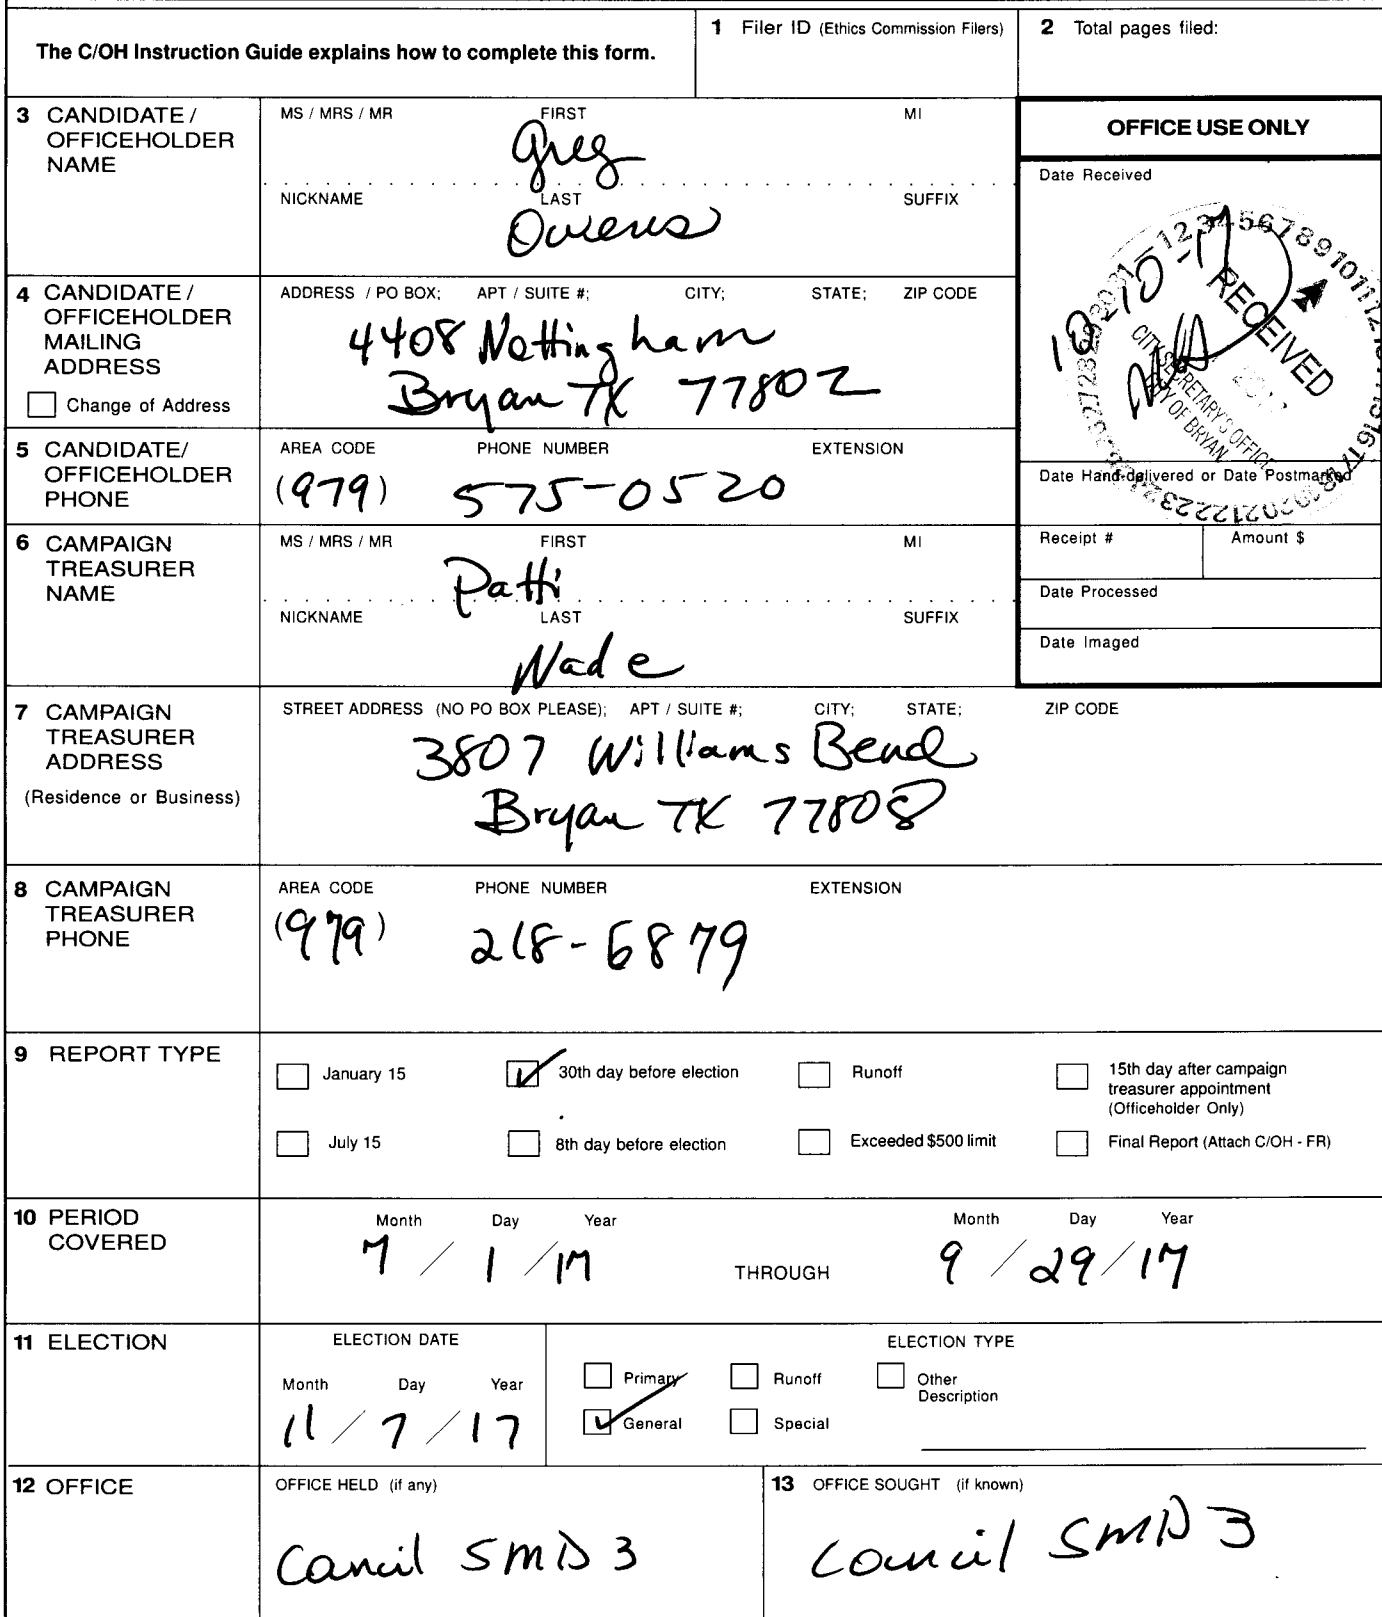 The C/OH Instruction Guide explains how to complete this form.
1 Filer ID (Ethics Commission Filers)
2 Total pages filed:
3 CANDIDATE / OFFICEHOLDER NAME
MS / MRS / MR FIRST MI
Greg
NICKNAME LAST SUFFIX
Owens
OFFICE USE ONLY
Date Received
RECEIVED
CITY SECRETARY'S OFFICE
CITY OF BRYAN
4 CANDIDATE / OFFICEHOLDER MAILING ADDRESS
Change of Address
ADDRESS / PO BOX; APT / SUITE #; CITY; STATE; ZIP CODE
4408 Nottingham
Bryan TX 77802
5 CANDIDATE/ OFFICEHOLDER PHONE
AREA CODE PHONE NUMBER EXTENSION
(979) 575-0520
Date Hand-delivered or Date Postmarked
Receipt # Amount $
Date Processed
Date Imaged
6 CAMPAIGN TREASURER NAME
MS / MRS / MR FIRST MI
Patti
NICKNAME LAST SUFFIX
Wade
7 CAMPAIGN TREASURER ADDRESS
(Residence or Business)
STREET ADDRESS (NO PO BOX PLEASE); APT / SUITE #; CITY; STATE; ZIP CODE
3807 Williams Bend
Bryan TX 77808
8 CAMPAIGN TREASURER PHONE
AREA CODE PHONE NUMBER EXTENSION
(979) 218-6879
9 REPORT TYPE
January 15
30th day before election
Runoff
15th day after campaign treasurer appointment (Officeholder Only)
July 15
8th day before election
Exceeded $500 limit
Final Report (Attach C/OH - FR)
10 PERIOD COVERED
Month Day Year
7 / 1 / 17
THROUGH
Month Day Year
9 / 29 / 17
11 ELECTION
ELECTION DATE
Month Day Year
11 / 7 / 17
ELECTION TYPE
Primary
Runoff
Other Description
General
Special
12 OFFICE
OFFICE HELD (if any)
Council SMD 3
13 OFFICE SOUGHT (if known)
Council SMD 3